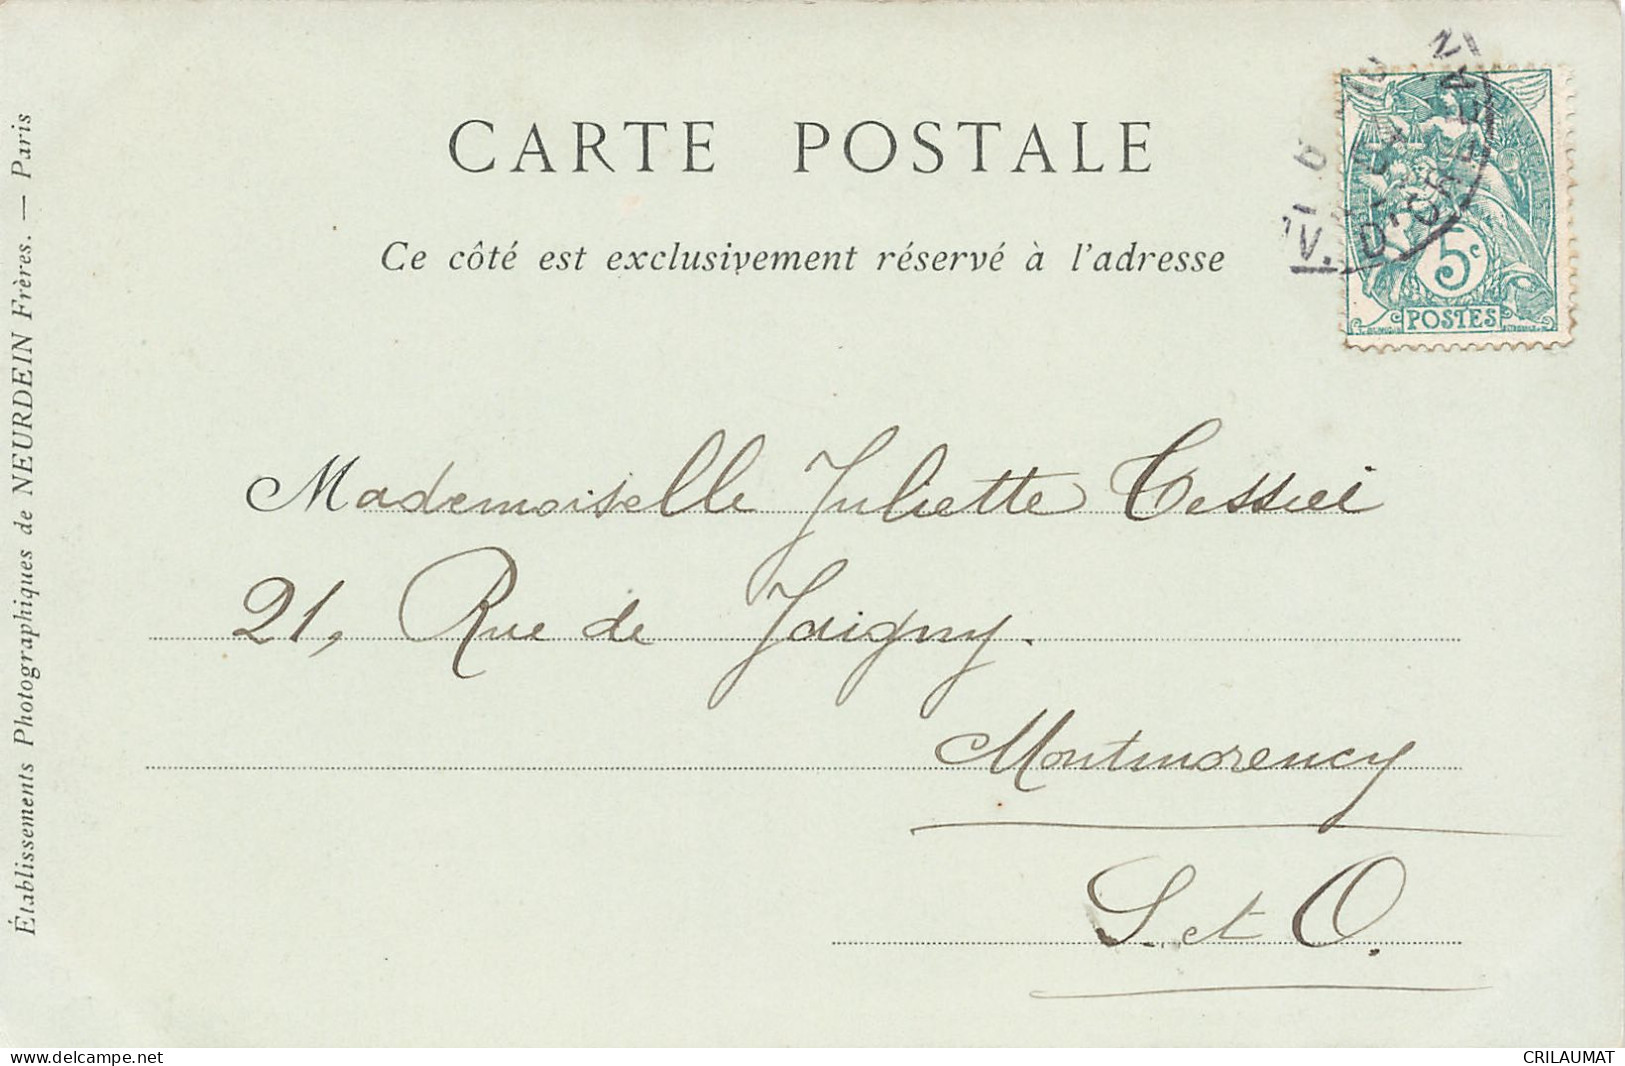 CARTE POSTALE
Ce côté est exclusivement réservé à l'adresse
5c
POSTES
Mademoiselle Juliette Tessier
21, Rue de Jaigny.
Montmorency
S. et O.
Établissements Photographiques de NEURDEIN Frères. — Paris
Fr.delcampe.net
CRILAUMAT